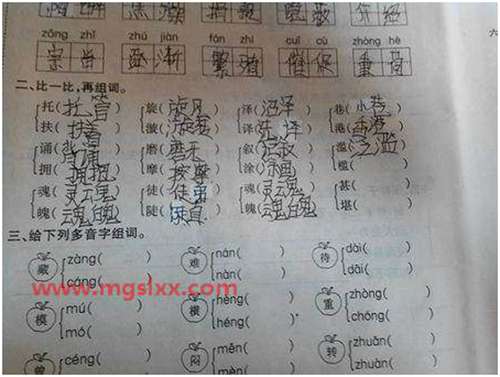 zōng zhǐ zhú jiàn fán zhí cuī cù zhòng hè
宗旨 逐渐 繁殖 催促 重荷
二、比一比,再组词。
托(托) 旋(旋风) 泽(沼泽) 巷(小巷)
扶(扶着) 漩(漩) 译() 港(香港)
诵(背诵) 磨(磨) 叙(记叙) 滥(泛滥)
拥(拥抱) 摩(按摩) 涂(涂画) 槛()
魂(灵魂) 徒(徒弟) 魂(灵魂) 甚()
魄(魂魄) 陡(陡直) 魄(魂魄) 堪()
三、给下列多音字组词。
藏 zàng() 难 nán() 待 dāi()
cáng() nàn() dài()
www.mgslxx.com
模 mú() 横 hèng() 重 zhòng()
mó() héng() chóng()
曾 céng() 闷 mēn() 转 zhuǎn()
mèn() zhuàn()